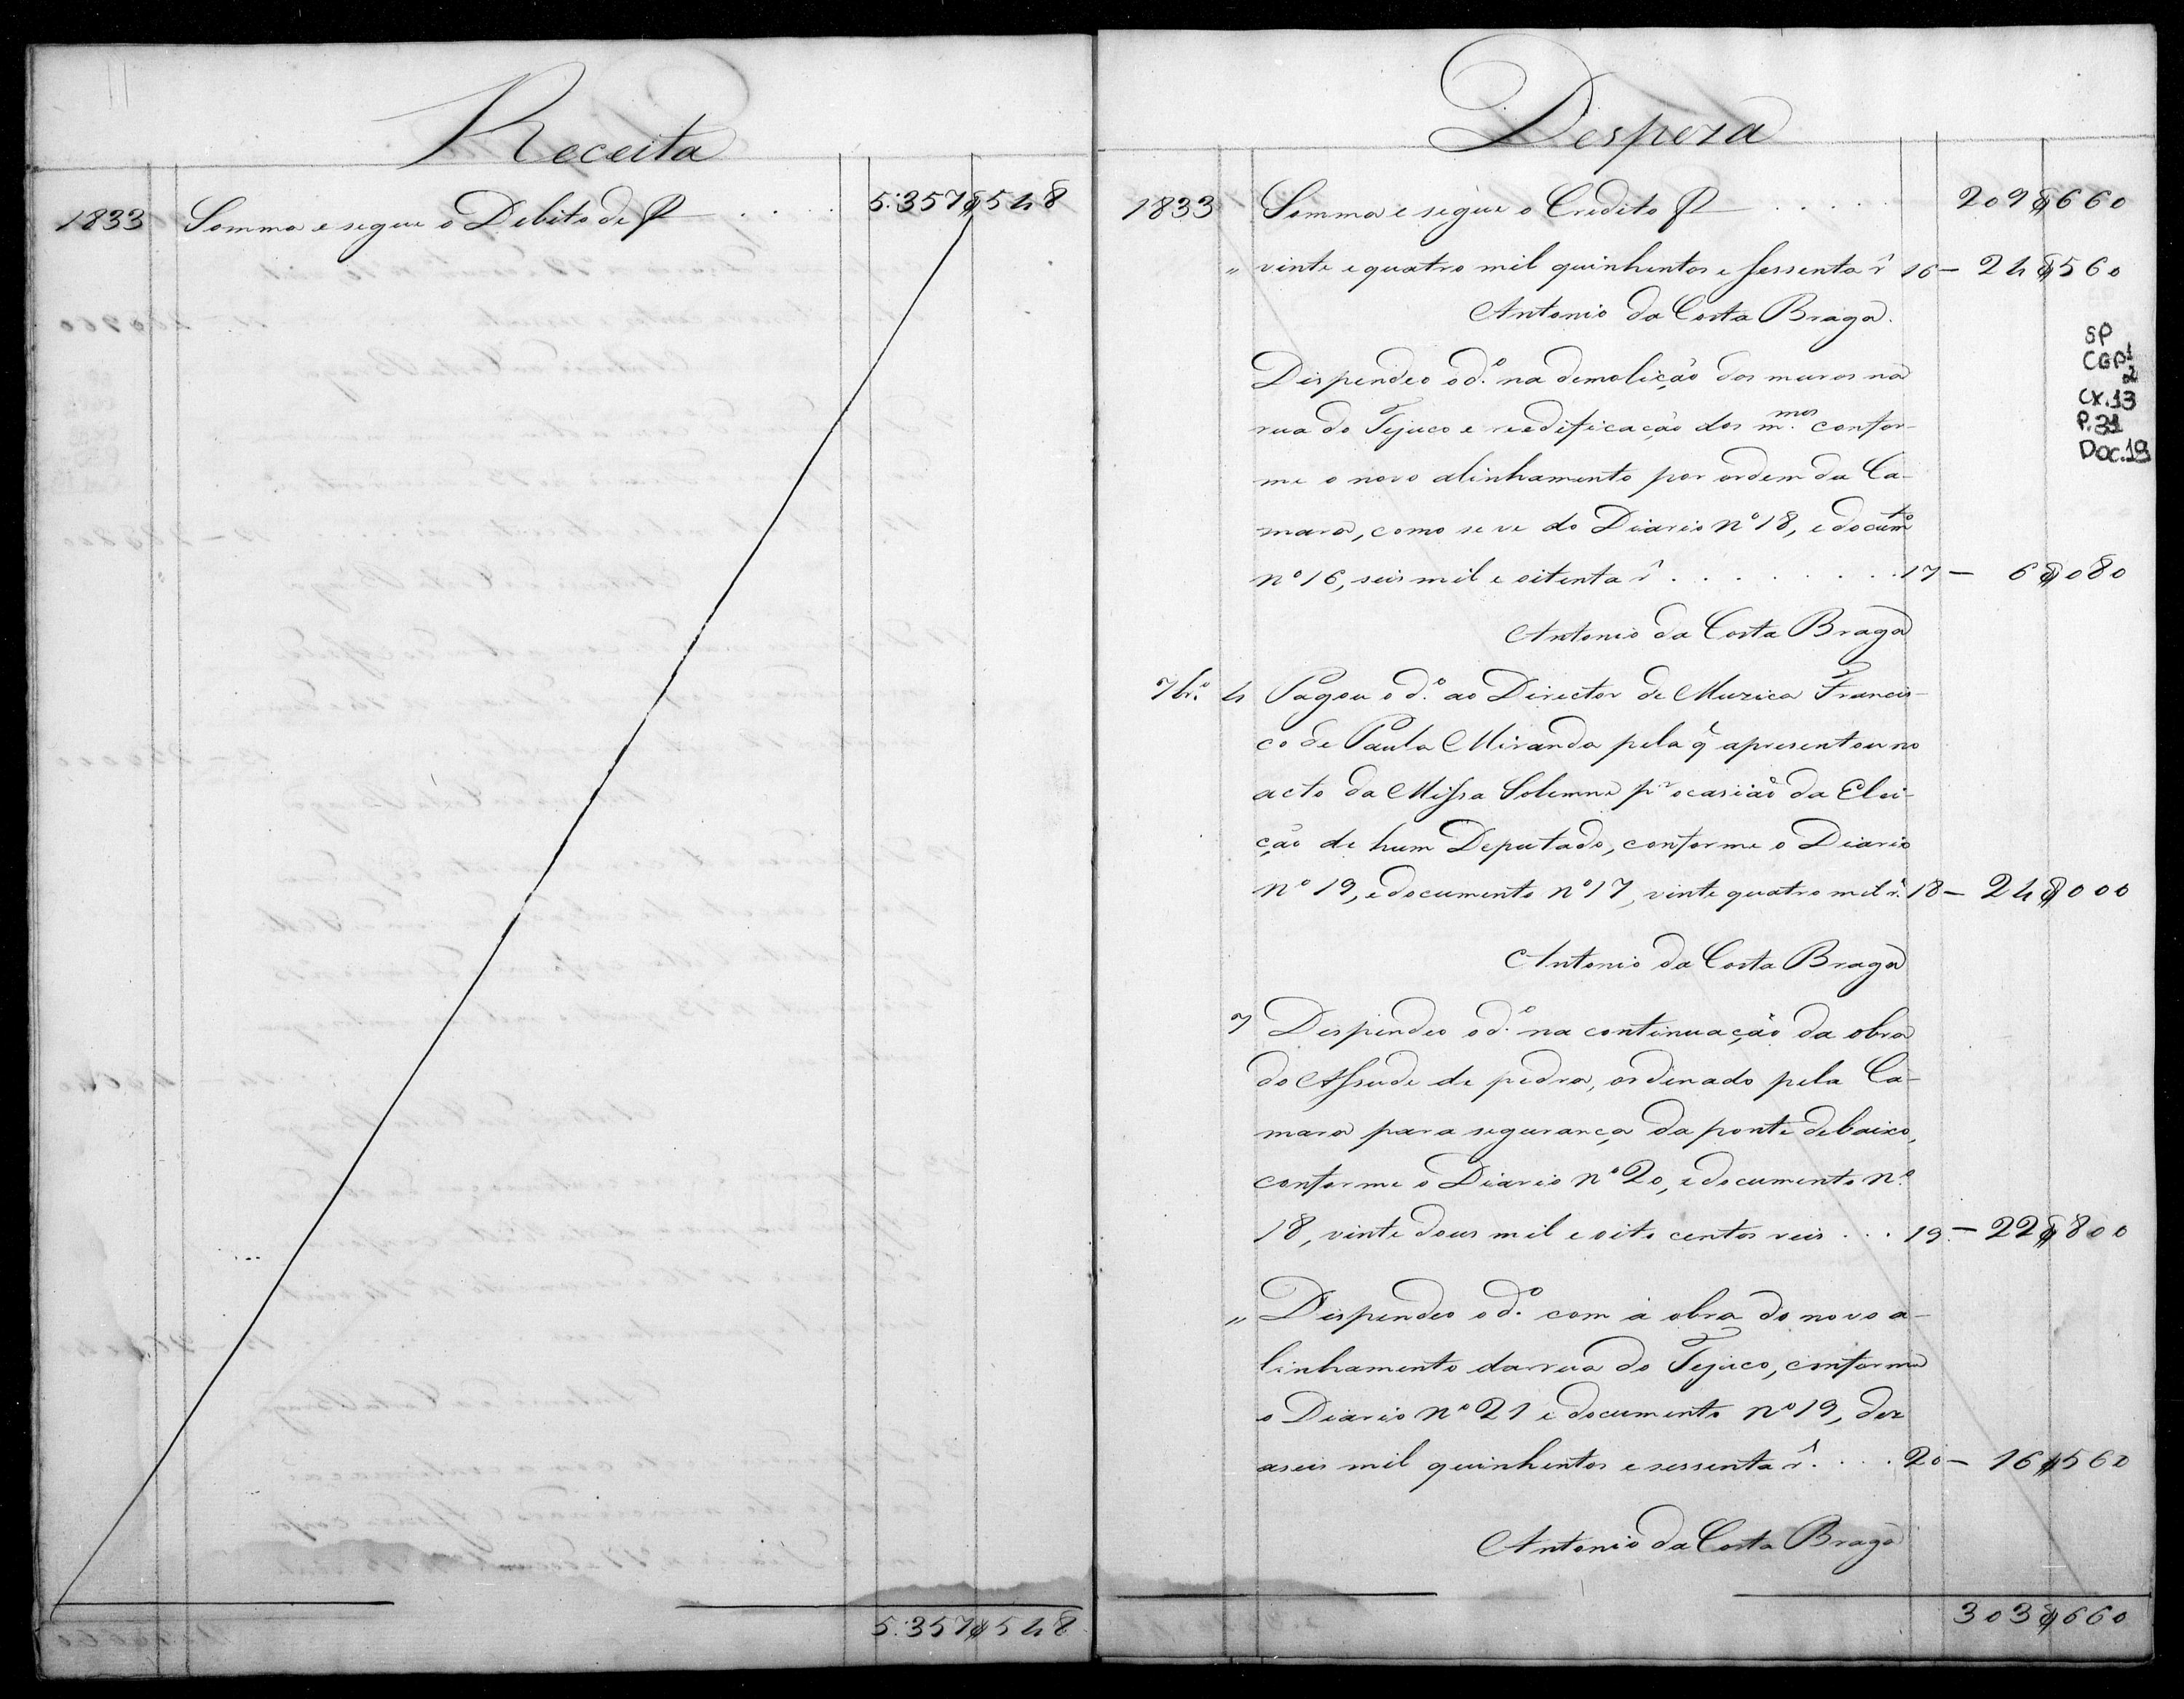 Receita
1833 Somma e segue o Debito de R . . . . 5:357$548
5:357$548
Despeza
1833 Somma e segue o Credito R . . . . . 209$660
" vinte e quatro mil quinhentos e sessenta r̂ 16 — 24$560
Antonio da Costa Braga.
Dispendeo o d.º na demolição dos muros na
rua do Tejuco e reedificação dos m.mos confor-
me o novo alinhamento por ordem da Ca-
mara, como se ve do Diario nº 18, e docum.to
nº 16, seis mil e oitenta r̂ . . . . . . . . . 17 — 6$080
Antonio da Costa Braga
7br.º 4 Pagou o d.º ao Director de Muzica Francis-
co de Paula Miranda pela q̃ apresentou no
acto da Missa Solemne p.r ocasião da Elei-
ção de hum Deputado, conforme o Diario
nº 19, e documento nº 17, vinte quatro mil r̂. 18 — 24$000
Antonio da Costa Braga
7 Dispendeo o d.º na continuação da obra
do Assude de pedra, ordenado pela Ca-
mara para segurança da ponte debaixo,
conforme o Diario nº 20, e documento n.º
18, vinte dous mil e oito centos reis . . . 19 — 22$800
" Dispendeo o d.º com a obra do novo a-
linhamento da rua do Tejuco, conforme
o Diario nº 21 e documento nº 19, dez
aseis mil quinhentos e sessenta r̂. . . . 20 — 16$560
Antonio da Costa Braga
303$660
SP
CGP1
2
CX.13
P.31
Doc.19